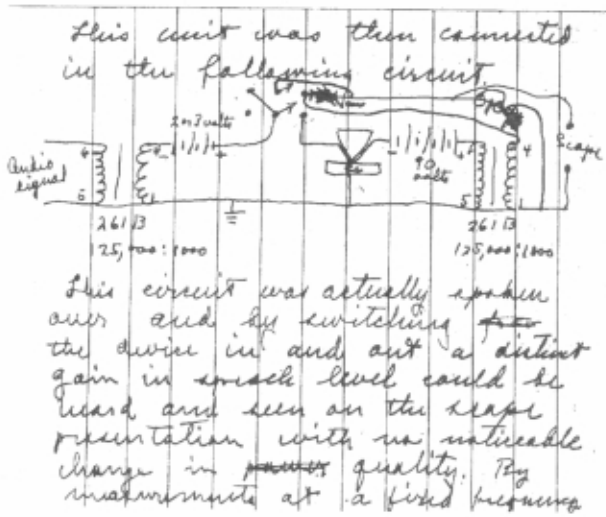 This unit was then connected
in the following circuit
2 or 3 volts
Scope
Audio
signal
4
6
4
1
-
+
-
+
90
volts
Ge
5
4
1
261 B
125,000:1000
261 B
125,000:1000
This circuit was actually spoken
over and by switching
the device in and out a distinct
gain in speech level could be
heard and seen on the scope
presentation with no noticeable
change in quality. By
measurements at a fixed frequency